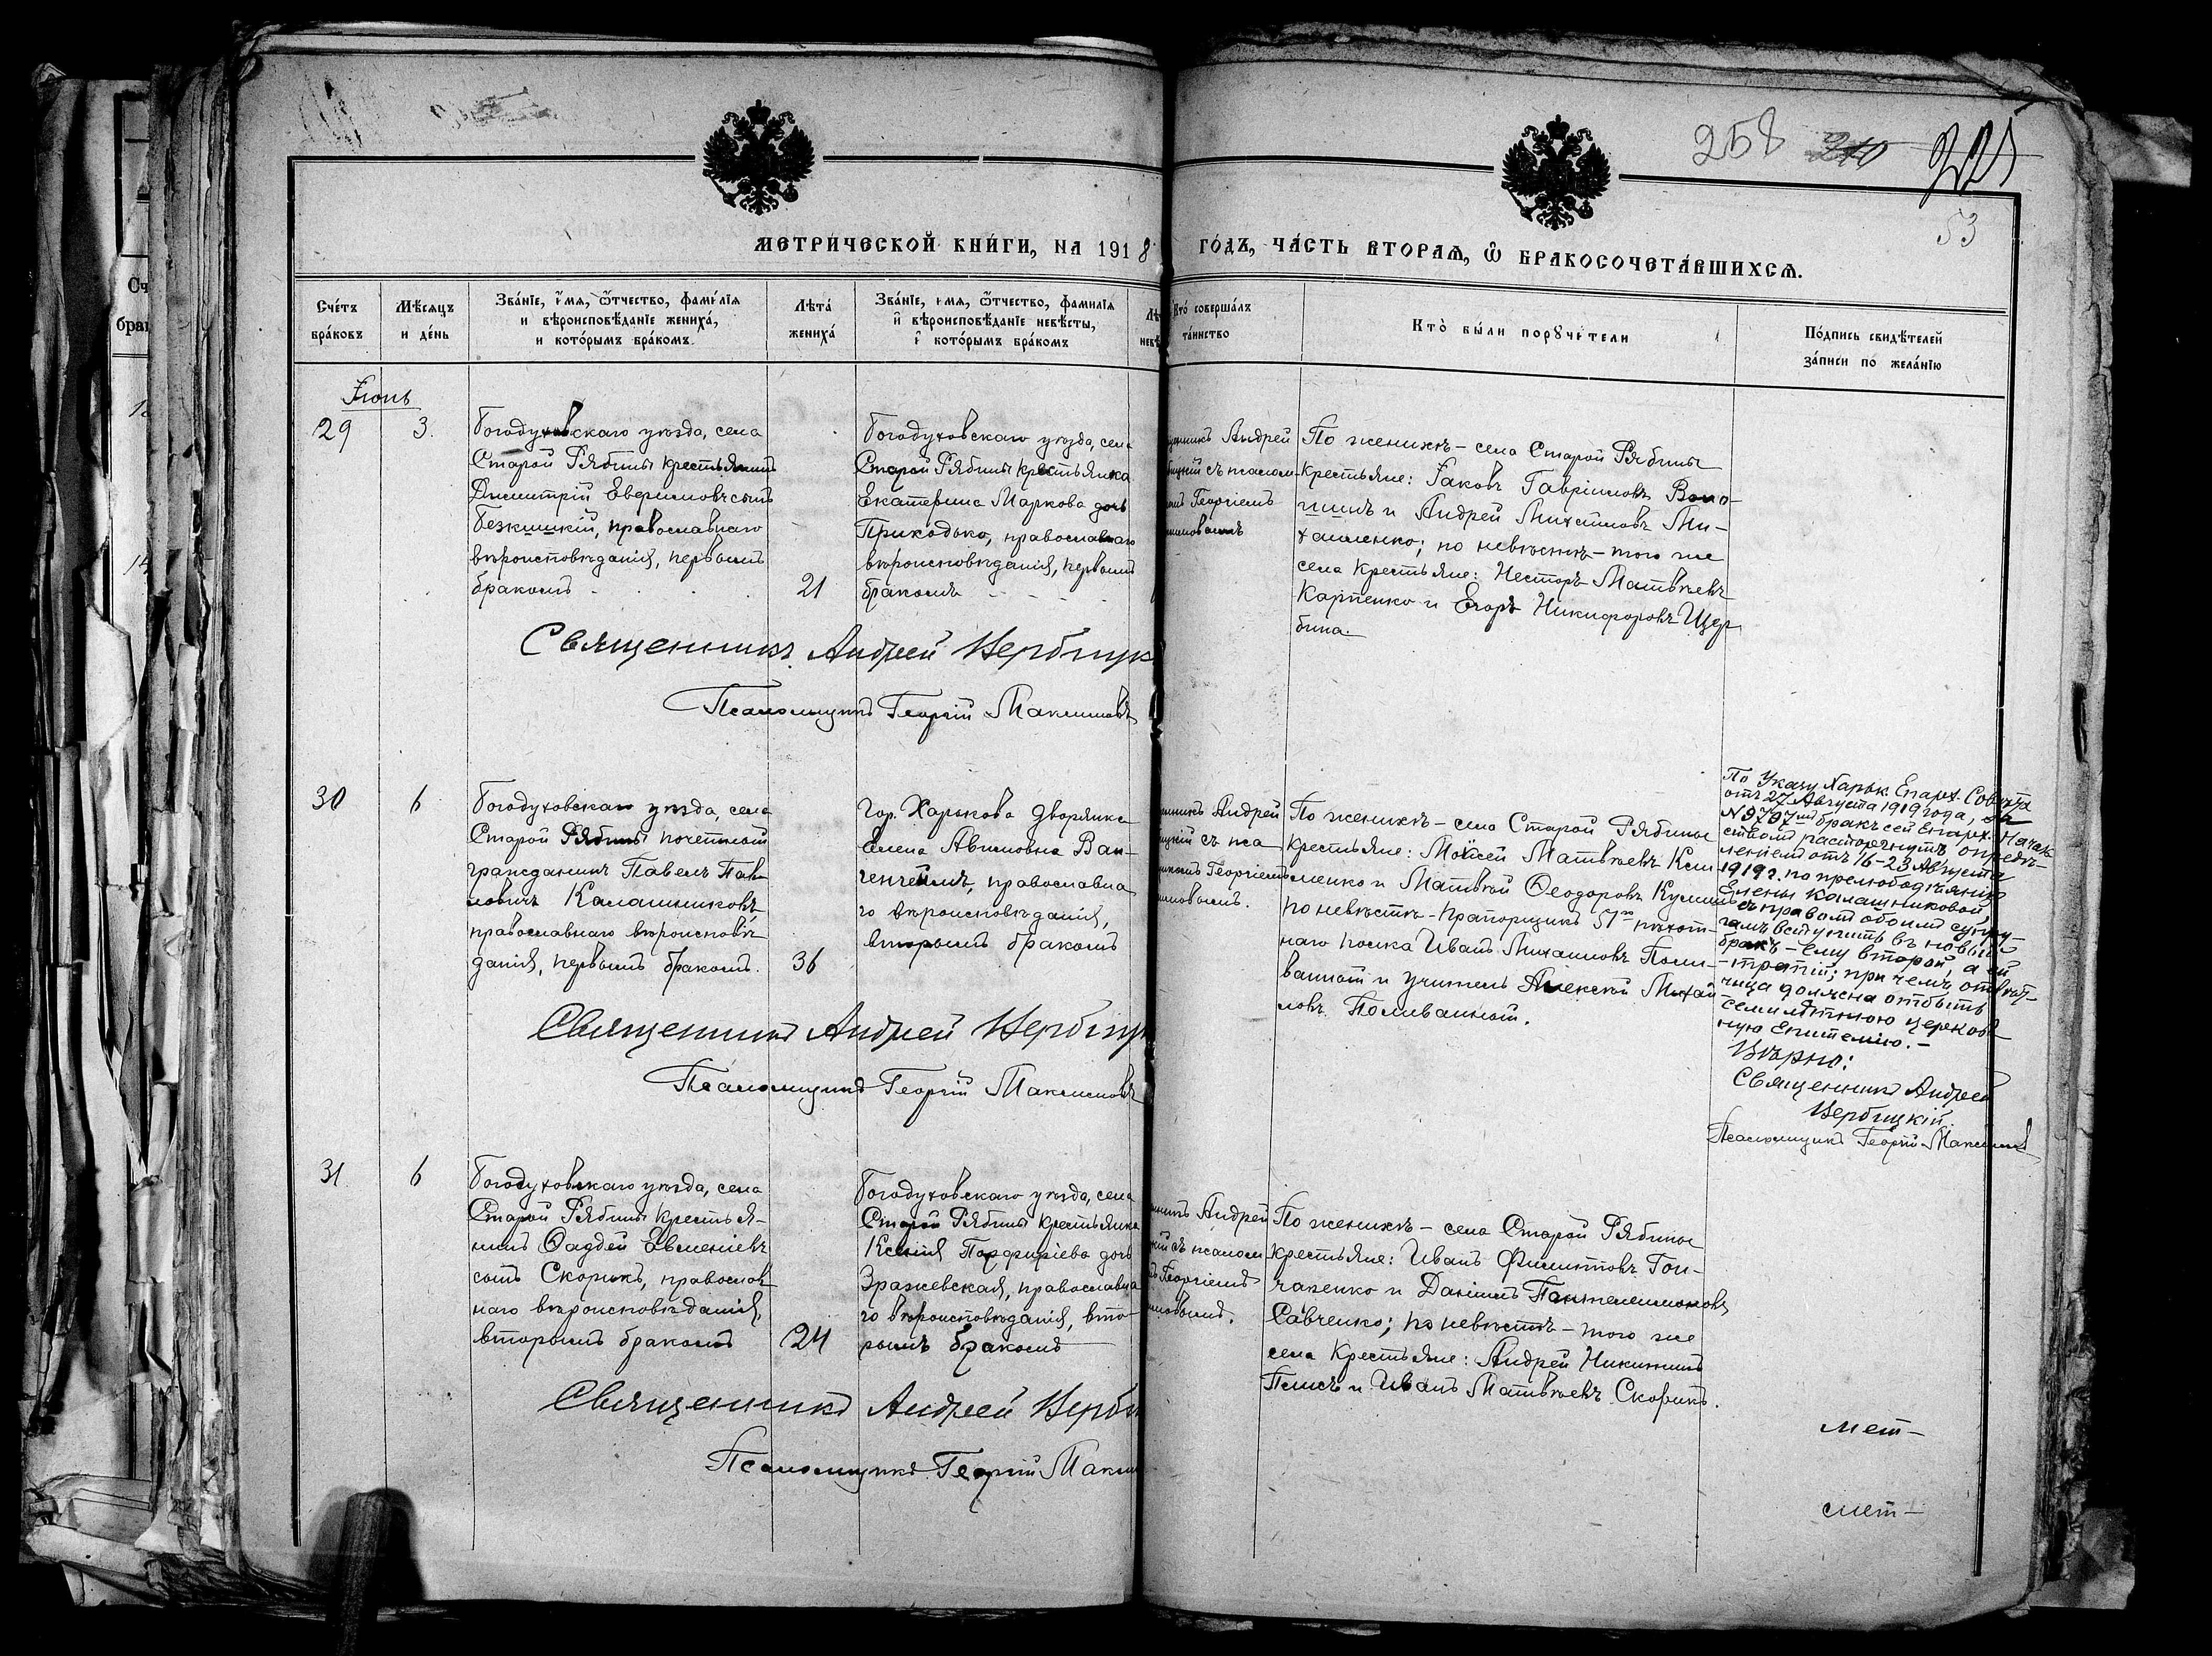 258 210 225
53
МЕТРИЧЕСКОЙ КНИГИ, НА 1918
ГОДЪ, ЧАСТЬ ВТОРАЯ, Ѿ БРАКОСОЧЕТАВШИХСЯ.
Счетъ браковъ
Мѣсяцъ и день
Званіе, имя, ѿтчество, фамилія
и вѣроисповѣданіе жениха,
и которымъ бракомъ.
Лѣта жениха
Званіе, имя, ѿтчество, фамилія
и вѣроисповѣданіе невѣсты,
и которымъ бракомъ
Кто совершалъ
таинство
Кто были поручители
Подпись свидѣтелей
записи по желанію
29
3.
Богодуховскаго уѣзда, села
Старой Рябины крестьянинъ
Димитрій сынъ
православнаго
вѣроисповѣданія, первымъ
бракомъ
21
Богодуховскаго уѣзда, села
Старой Рябины крестьянка
Екатерина Маркова дочь
Приходько, православнаго
вѣроисповѣданія, первымъ
бракомъ
Андрей
съ псалом-
Георгіемъ
По женихѣ – села Старой Рябины
крестьяне: Іаковъ Гавріиловъ
и Андрей Михаиловъ Ми-
хайленко; по невѣстѣ – того же
села крестьяне: Несторъ Матвѣевъ
Карпенко и Егоръ Никифоровъ Щер
бина.
Священникъ Андрей
Псаломщикъ Георгій Максимовъ
30
6
Богодуховскаго уѣзда, села
Старой Рябины почетный
гражданинъ Павелъ Пав
ловичъ Калашниковъ
православнаго вѣроисповѣ
данія, первымъ бракомъ.
36
Гор. Харькова дворянка
Елена
православна
го вѣроисповѣданія,
вторымъ бракомъ
Андрей
съ пса
Георгіемъ
По женихѣ – села Старой Рябины
крестьяне: Моѵсей Матвѣевъ Кли
менко и Матвѣй Ѳеодоровъ
по невѣстѣ – прапорщикъ 51го пѣхот-
наго полка Иванъ Михаиловъ Поли-
ванный и учитель Алексѣй Михай
ловъ Поливанный.
По Указу Харьк. Епарх. Совѣта
отъ 27 Августа 1919 года, за
бракъ сей Епарх. Началь
ствомъ расторгнутъ опредѣ-
леніемъ отъ 16–23 Августа
1919 г. по прелюбодѣянію
Елены Калашниковой,
съ правомъ обоимъ супру-
гамъ вступить въ новый
бракъ – ему второй, а ей
– третій; при чемъ отвѣт-
чица должна отбыть
семилѣтнюю церков
ную епитемію. –
Вѣрно:
Священникъ Андрей
Вербицкій.
Псаломщикъ Георгій Максимовъ
Священникъ Андрей
Псаломщикъ Георгій Максимовъ
31
6
Богодуховскаго уѣзда, села
Старой Рябины крестья-
нинъ Ѳаддей Евменіевъ
сынъ Скорикъ, православ
наго вѣроисповѣданія,
вторымъ бракомъ
24
Богодуховскаго уѣзда, села
Старой Рябины крестьянка
Ксенія Порфиріева дочь
Эражевская, православна
го вѣроисповѣданія, вто-
рымъ бракомъ
Андрей
съ псалом
Георгіемъ
По женихѣ – села Старой Рябины
крестьяне: Иванъ Филипповъ Гон-
чаренко и Даніилъ Пантелеимоновъ
Савченко; по невѣстѣ – того же
села крестьяне: Андрей Никитинъ
и Иванъ Матвѣевъ Скорикъ.
Священникъ Андрей
Псаломщикъ Георгій